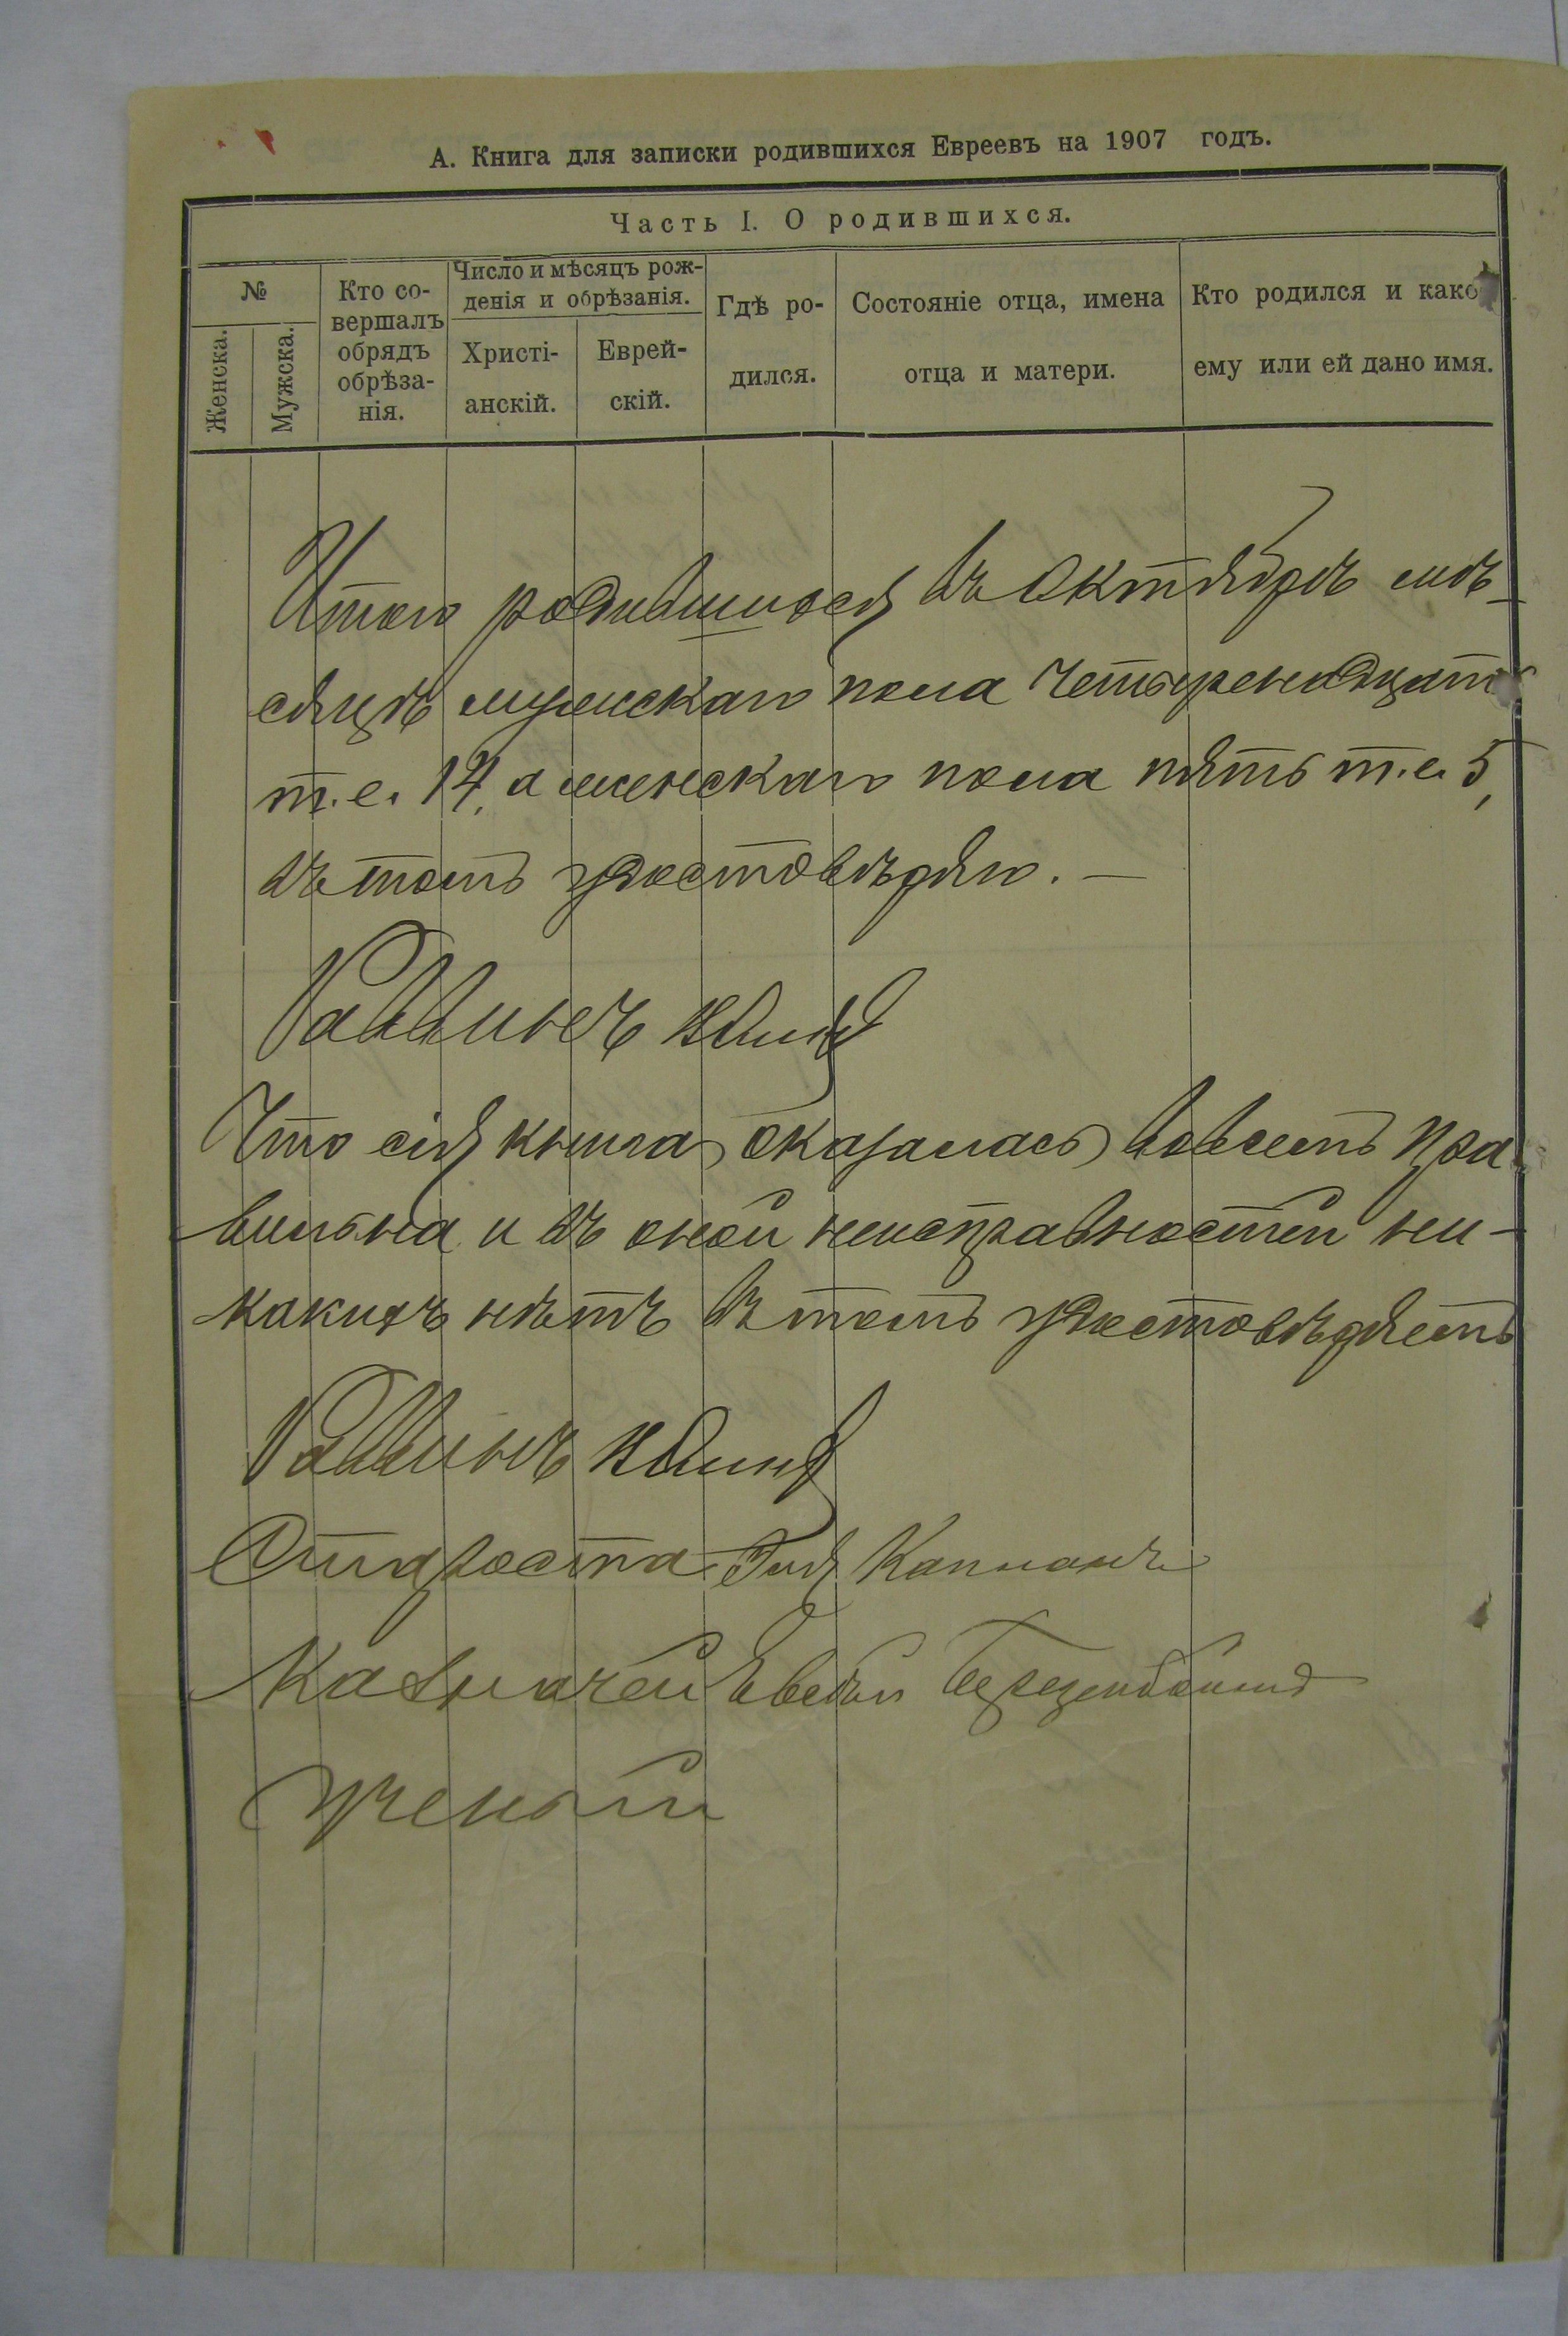 А. Книга для записки родившихся Евреевъ на 1907 годъ.
Часть I. О родившихся.
№
Женска.
Мужска.
Кто со-
вершалъ
обрядъ
обрѣза-
нія.
Число и мѣсяцъ рож-
денія и обрѣзанія.
Христі-
анскій.
Еврей-
скій.
Гдѣ ро-
дился.
Состояніе отца, имена
отца и матери.
Кто родился и како
ему или ей дано имя.
Итого родившихся въ Октябрѣ мѣ-
сяцѣ мужскаго пола четыренадцать
т.е. 14, а женскаго пола пять т.е. 5,
въ томъ удостовѣряю. —
Раввинъ
Что сія книга оказалась вовсемъ пра
вильна и въ оной неисправностей ни-
какихъ нѣтъ въ томъ удостовѣряемъ
Раввинъ
Староста Капланъ
Казначей
Ученый